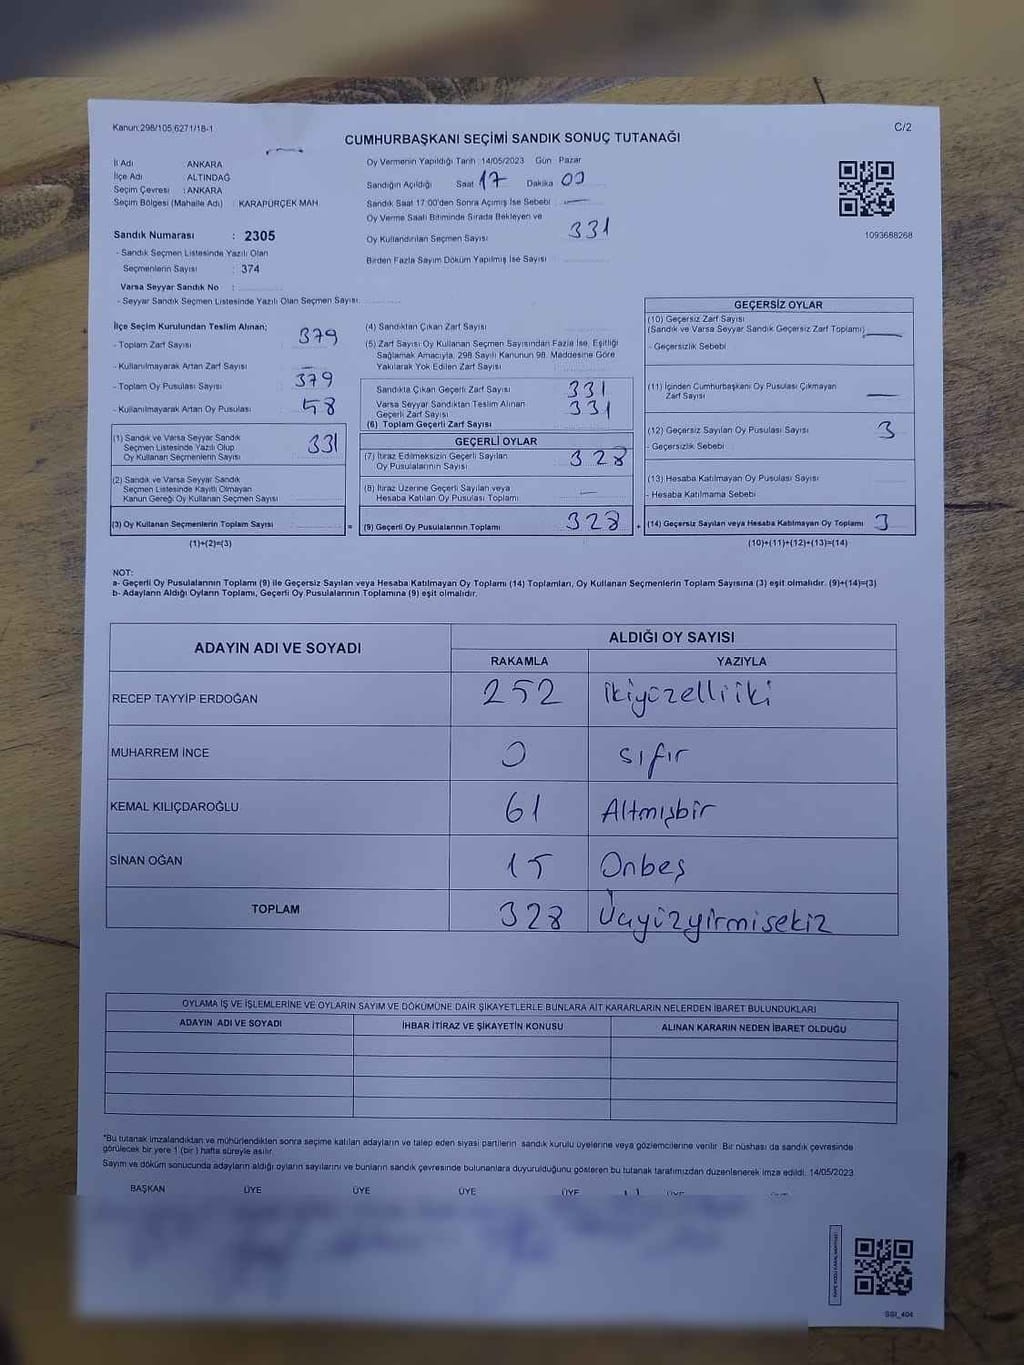 Kanun:298/105;6271/18-1
C/2
CUMHURBAŞKANI SEÇİMİ SANDIK SONUÇ TUTANAĞI
İl Adı : ANKARA
İlçe Adı : ALTINDAĞ
Seçim Çevresi : ANKARA
Seçim Bölgesi (Mahalle Adı) : KARAPÜRÇEK MAH
Sandık Numarası : 2305
- Sandık Seçmen Listesinde Yazılı Olan
Seçmenlerin Sayısı : 374
Varsa Seyyar Sandık No :
- Seyyar Sandık Seçmen Listesinde Yazılı Olan Seçmen Sayısı:
Oy Vermenin Yapıldığı Tarih : 14/05/2023 Gün : Pazar
Sandığın Açıldığı Saat 17 Dakika 00
Sandık Saat 17:00'den Sonra Açılmış İse Sebebi : —
Oy Verme Saati Bitiminde Sırada Bekleyen ve
Oy Kullandırılan Seçmen Sayısı 331
Birden Fazla Sayım Döküm Yapılmış İse Sayısı
1093688268
İlçe Seçim Kurulundan Teslim Alınan;
- Toplam Zarf Sayısı 379
- Kullanılmayarak Artan Zarf Sayısı
- Toplam Oy Pusulası Sayısı 379
- Kullanılmayarak Artan Oy Pusulası 48
(1) Sandık ve Varsa Seyyar Sandık
Seçmen Listesinde Yazılı Olup
Oy Kullanan Seçmenlerin Sayısı 331
(2) Sandık ve Varsa Seyyar Sandık
Seçmen Listesinde Kayıtlı Olmayan
Kanun Gereği Oy Kullanan Seçmen Sayısı
(3) Oy Kullanan Seçmenlerin Toplam Sayısı
(1)+(2)=(3)
(4) Sandıktan Çıkan Zarf Sayısı
(5) Zarf Sayısı Oy Kullanan Seçmen Sayısından Fazla İse, Eşitliği
Sağlamak Amacıyla, 298 Sayılı Kanunun 98. Maddesine Göre
Yakılarak Yok Edilen Zarf Sayısı
Sandıkta Çıkan Geçerli Zarf Sayısı 331
Varsa Seyyar Sandıktan Teslim Alınan
Geçerli Zarf Sayısı 331
(6) Toplam Geçerli Zarf Sayısı
GEÇERLİ OYLAR
(7) İtiraz Edilmeksizin Geçerli Sayılan
Oy Pusulalarının Sayısı 328
(8) İtiraz Üzerine Geçerli Sayılan veya
Hesaba Katılan Oy Pusulası Toplamı —
= (9) Geçerli Oy Pusulalarının Toplamı 328
GEÇERSİZ OYLAR
(10) Geçersiz Zarf Sayısı
(Sandık ve Varsa Seyyar Sandık Geçersiz Zarf Toplamı) —
- Geçersizlik Sebebi
(11) İçinden Cumhurbaşkanı Oy Pusulası Çıkmayan
Zarf Sayısı —
(12) Geçersiz Sayılan Oy Pusulası Sayısı 3
- Geçersizlik Sebebi
(13) Hesaba Katılmayan Oy Pusulası Sayısı
- Hesaba Katılmama Sebebi
+ (14) Geçersiz Sayılan veya Hesaba Katılmayan Oy Toplamı 3
(10)+(11)+(12)+(13)=(14)
NOT:
a- Geçerli Oy Pusulalarının Toplamı (9) ile Geçersiz Sayılan veya Hesaba Katılmayan Oy Toplamı (14) Toplamları, Oy Kullanan Seçmenlerin Toplam Sayısına (3) eşit olmalıdır. (9)+(14)=(3)
b- Adayların Aldığı Oyların Toplamı, Geçerli Oy Pusulalarının Toplamına (9) eşit olmalıdır.
ADAYIN ADI VE SOYADI
ALDIĞI OY SAYISI
RAKAMLA YAZIYLA
RECEP TAYYİP ERDOĞAN 252 ikiyüzelliiki
MUHARREM İNCE 0 sıfır
KEMAL KILIÇDAROĞLU 61 Altmışbir
SİNAN OĞAN 15 Onbeş
TOPLAM 328 Üçyüzyirmisekiz
OYLAMA İŞ VE İŞLEMLERİNE VE OYLARIN SAYIM VE DÖKÜMÜNE DAİR ŞİKAYETLERLE BUNLARA AİT KARARLARIN NELERDEN İBARET BULUNDUKLARI
ADAYIN ADI VE SOYADI İHBAR İTİRAZ VE ŞİKAYETİN KONUSU ALINAN KARARIN NEDEN İBARET OLDUĞU
*Bu tutanak imzalandıktan ve mühürlendikten sonra seçime katılan adayların ve talep eden siyasi partilerin sandık kurulu üyelerine veya gözlemcilerine verilir. Bir nüshası da sandık çevresinde
görülecek bir yere 1 (bir) hafta süreyle asılır.
Sayım ve döküm sonucunda adayların aldığı oyların sayılarını ve bunların sandık çevresinde bulunanlara duyurulduğunu gösteren bu tutanak tarafımızdan düzenlenerek imza edildi. 14/05/2023
BAŞKAN ÜYE ÜYE ÜYE ÜYE ÜYE
SSI_404